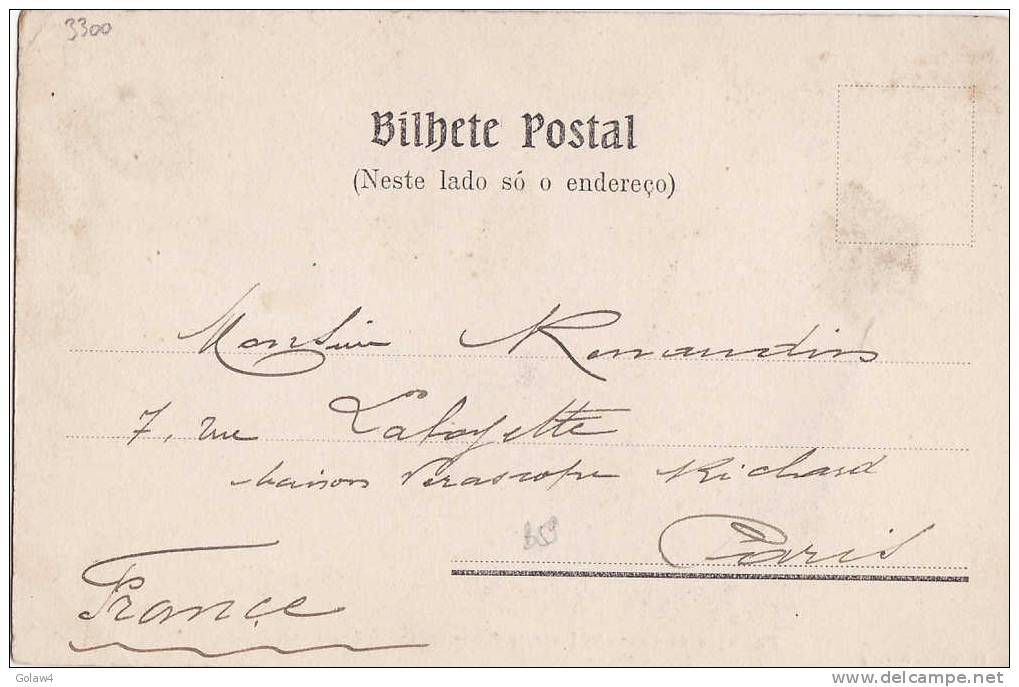 3300
Bilhete Postal
(Neste lado só o endereço)
Monsieur Renaudin
7, rue Lafayette
Maison Verascope Richard
Paris
France
Golaw4
www.delcampe.net